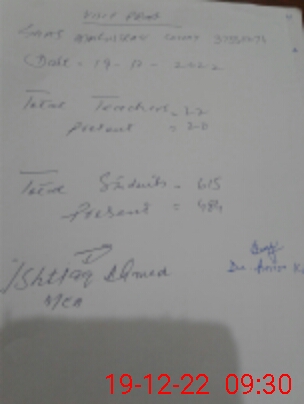 Visit Proof
Date = 19 - 12 - 2022
Total Teachers = 22
Present = 20
Total Students = 615
Present = 484
Ishtiaq Ahmed
MEA
19-12-22 09:30